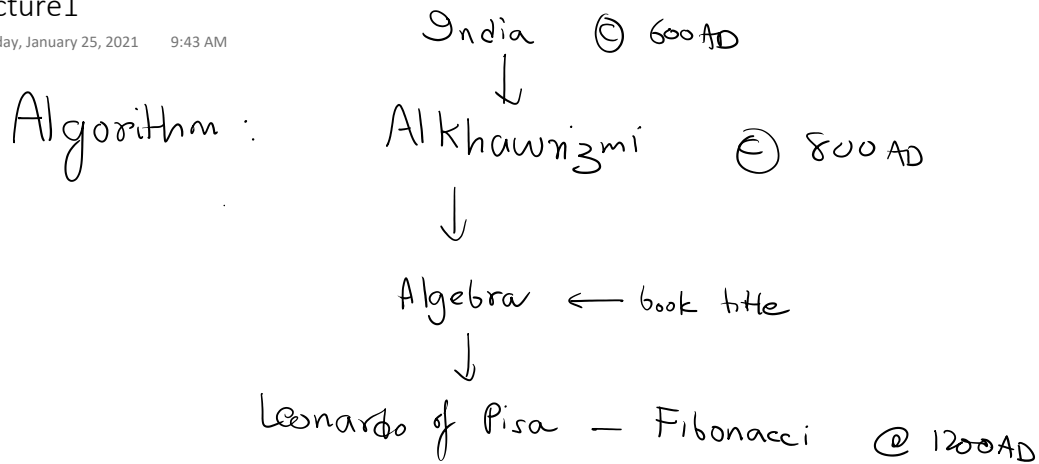 cture1
day, January 25, 2021 9:43 AM
India © 600 AD
Algorithm : Alkhawrizmi © 800 AD
Algebra ← book title
Leonardo of Pisa — Fibonacci @ 1200AD